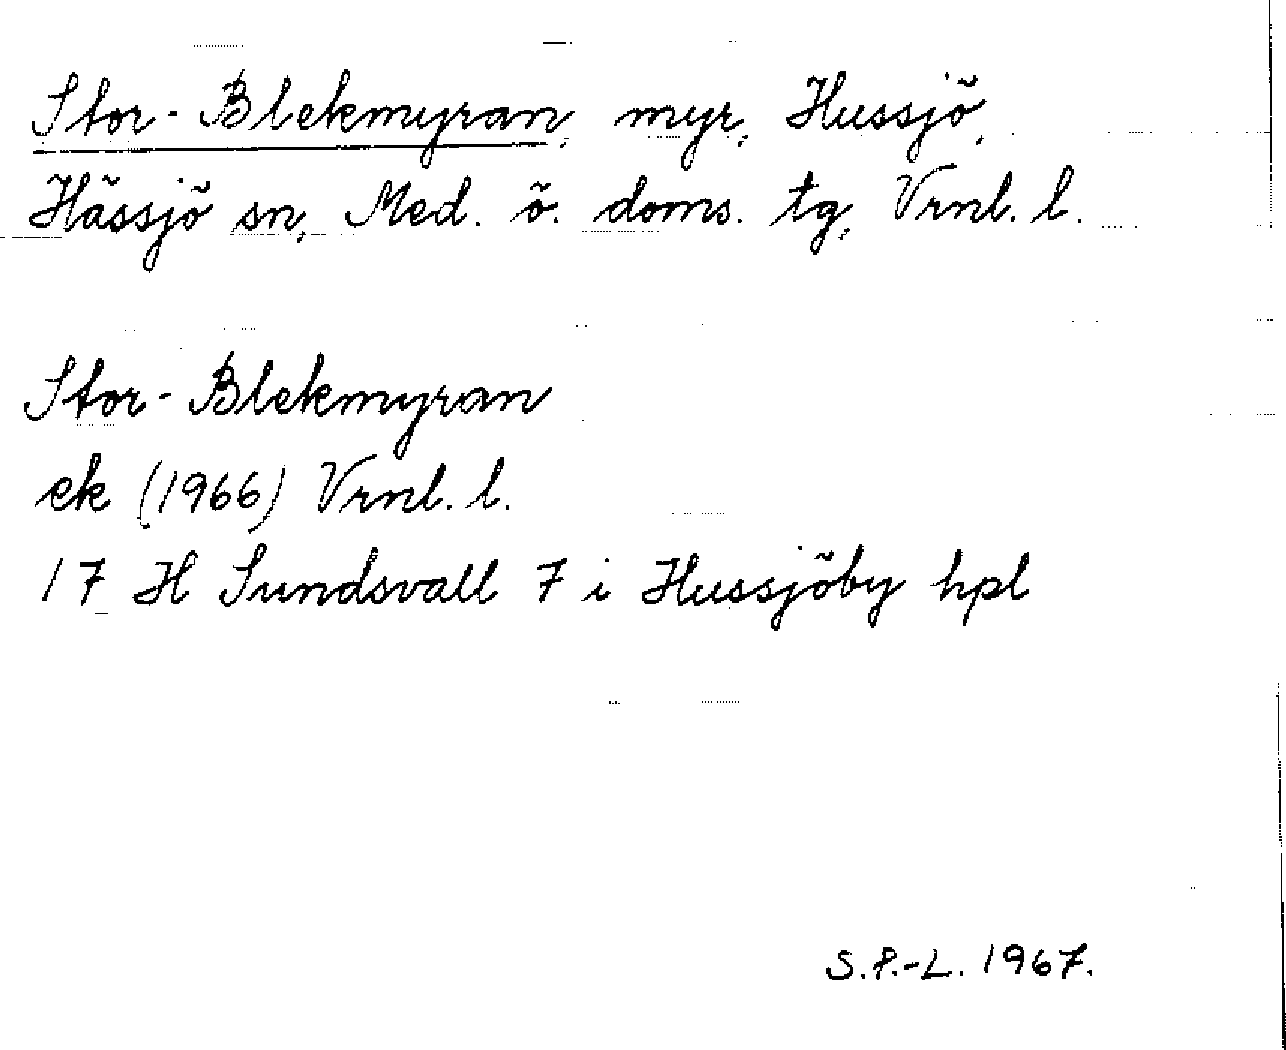 Stor-Blekmyran, myr, Hussjö,
Hässjö sn, Med. ö. doms. tg, Vrnl. l.
Stor-Blekmyran
ek (1966) Vrnl. l.
17 H Sundsvall 7 i Hussjöby hpl
S.P.-L. 1967.